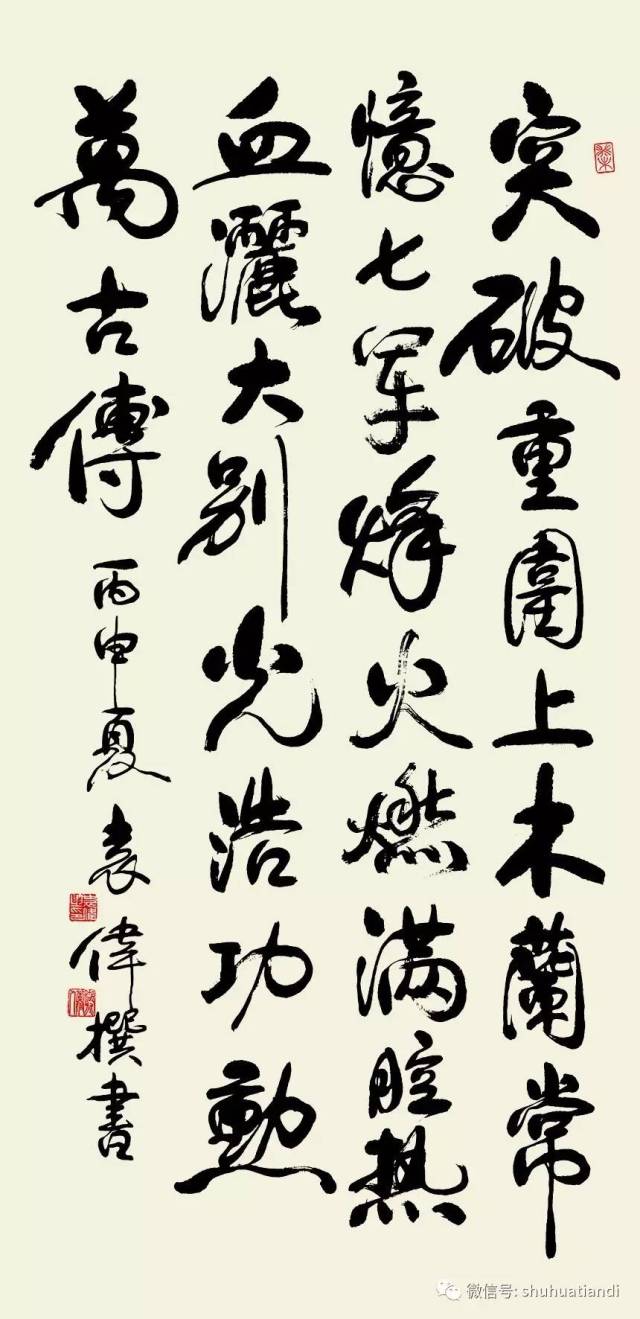 突破重圍上木蘭常
憶七军烽火燃满腔热
血灑大别光浩功勲
萬古傳
丙申夏袁偉撰書
微信号: shuhuatiandi